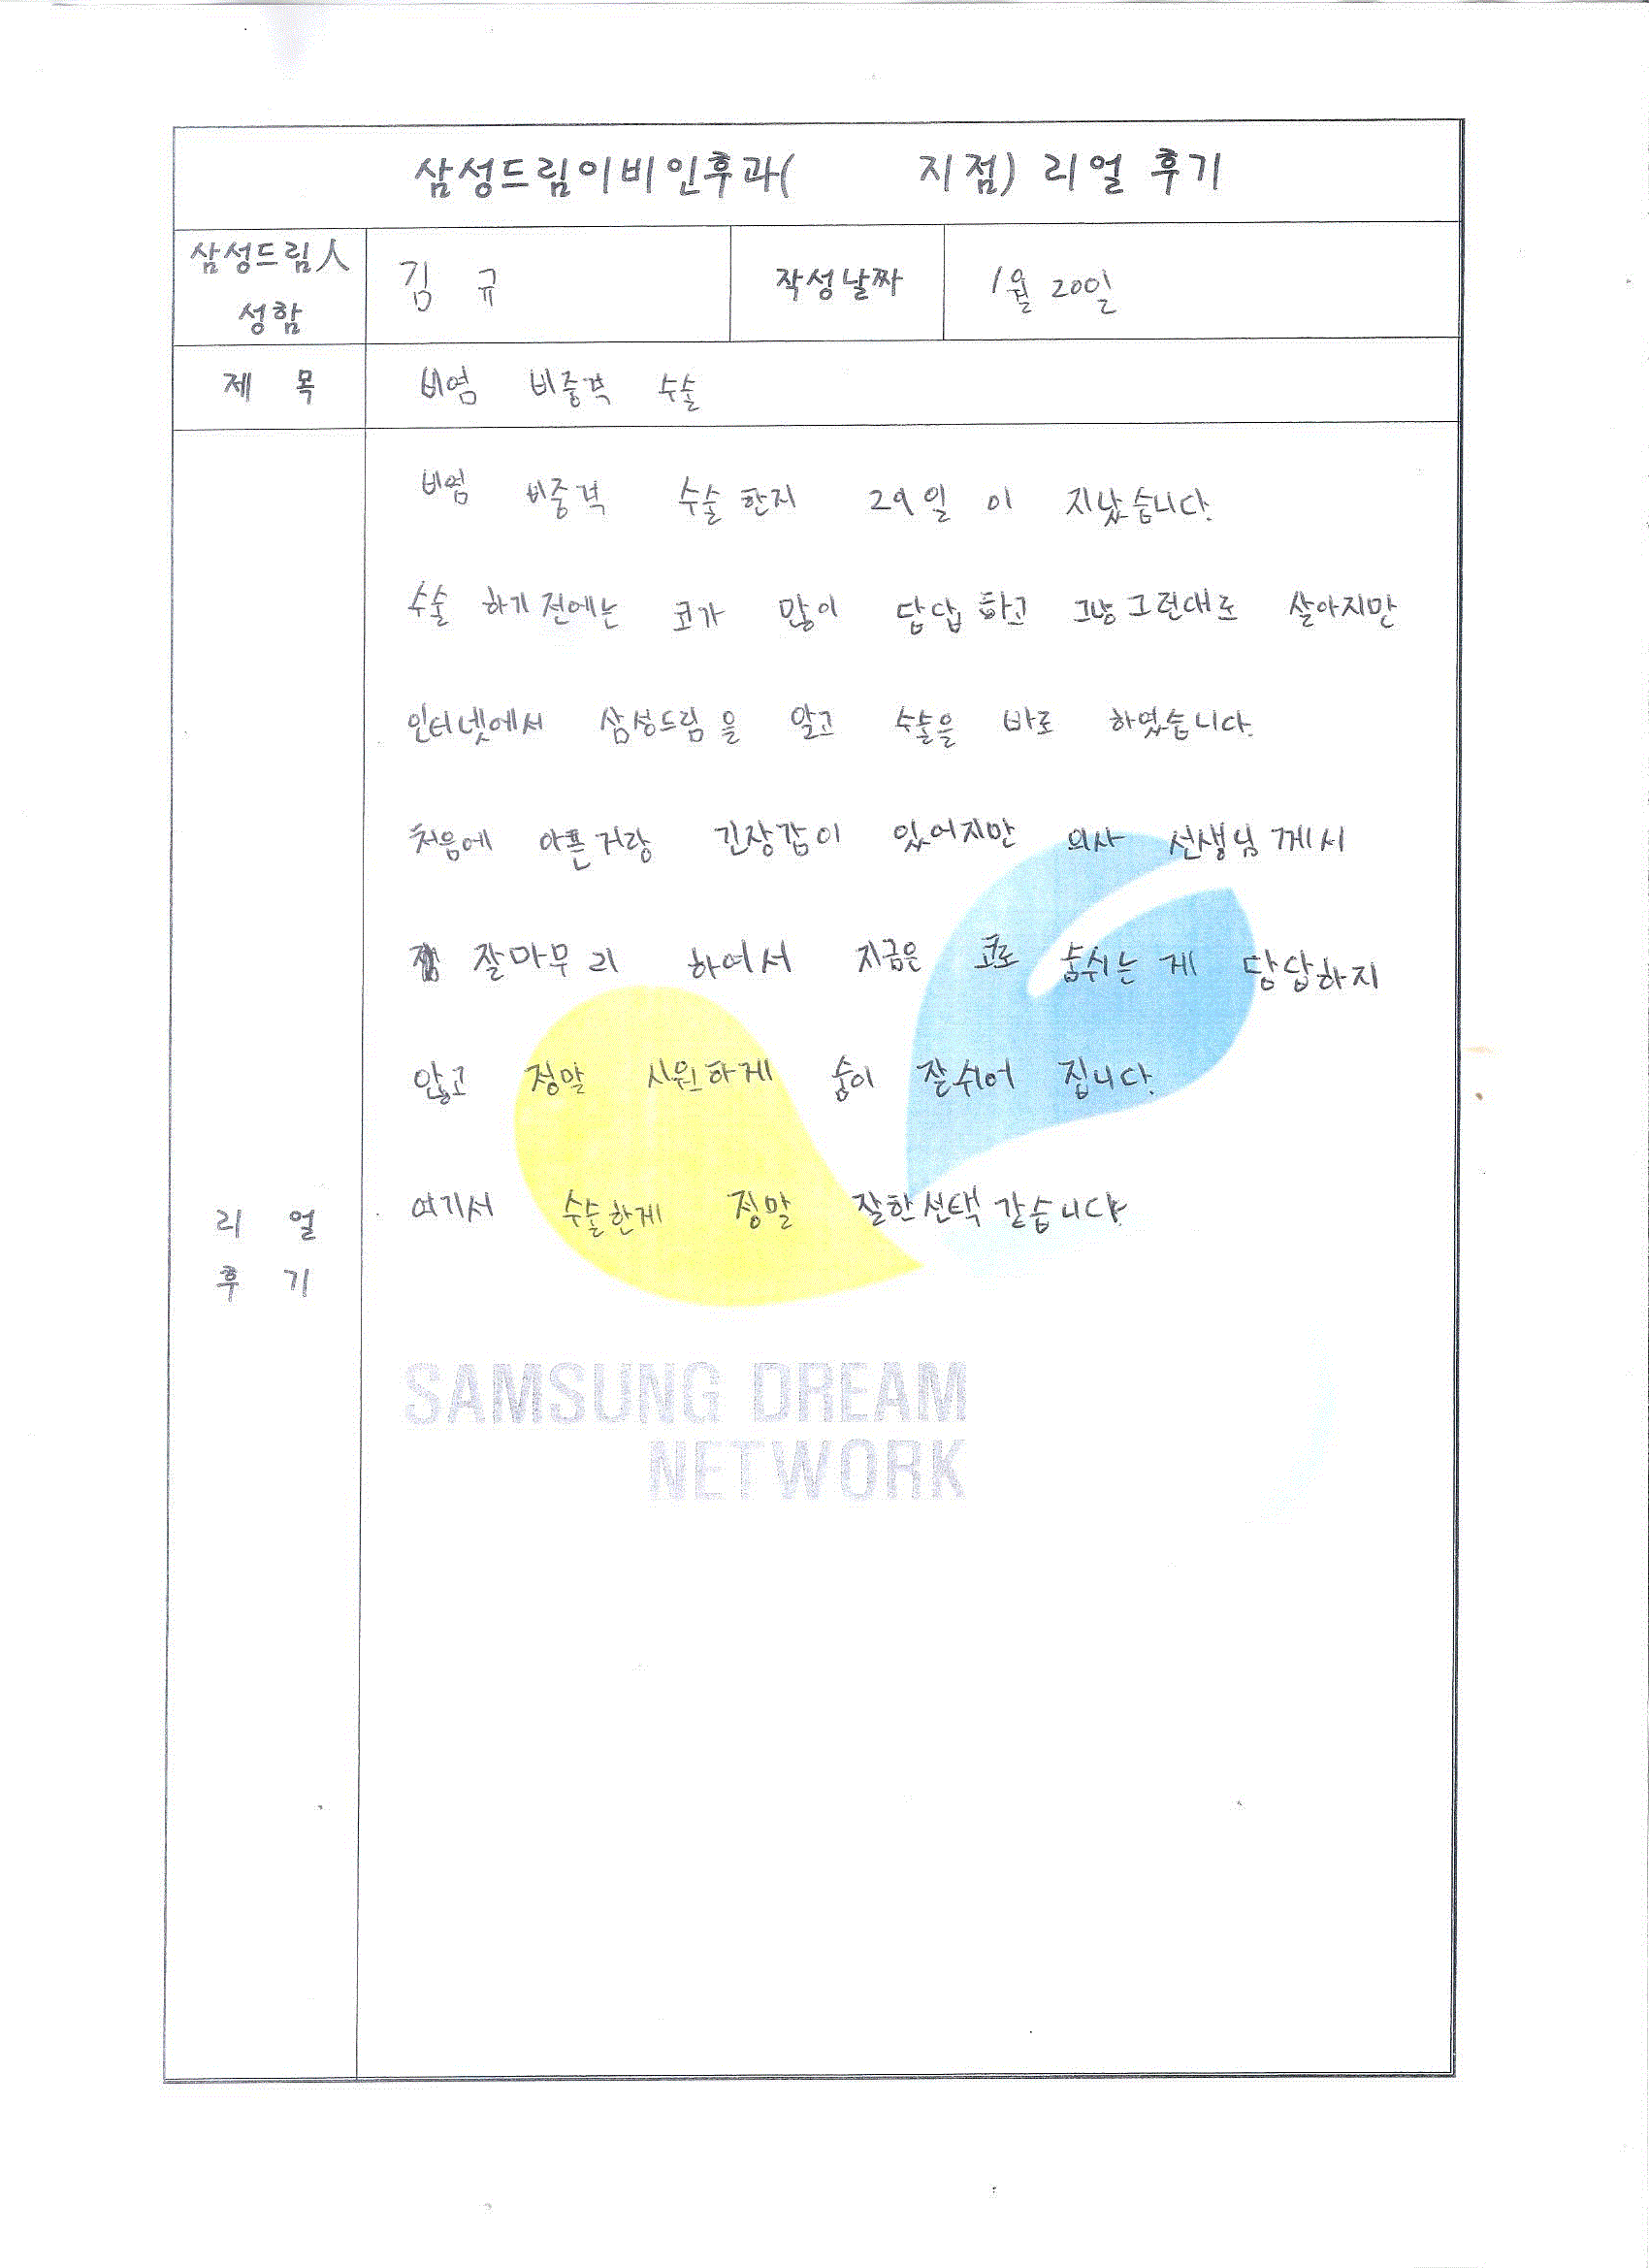 삼성드림이비인후과( 지점) 리얼 후기
삼성드림人
성함
김 규
작성날짜
1월 20일
제 목
비염 비중격 수술
비염 비중격 수술한지 29일 이 지났습니다.
수술 하기전에는 코가 많이 답답하고 그냥그런대로 살아지만
인터넷에서 삼성드림을 알고 수술을 바로 하였습니다.
처음에 아픈거랑 긴장감이 있어지만 의사 선생님께서
잘마무리 하여서 지금은 코로 숨쉬는게 답답하지
않고 정말 시원하게 숨이 잘쉬어 집니다.
여기서 수술한게 정말 잘한선택 같습니다
리 얼
후 기
SAMSUNG DREAM
NETWORK